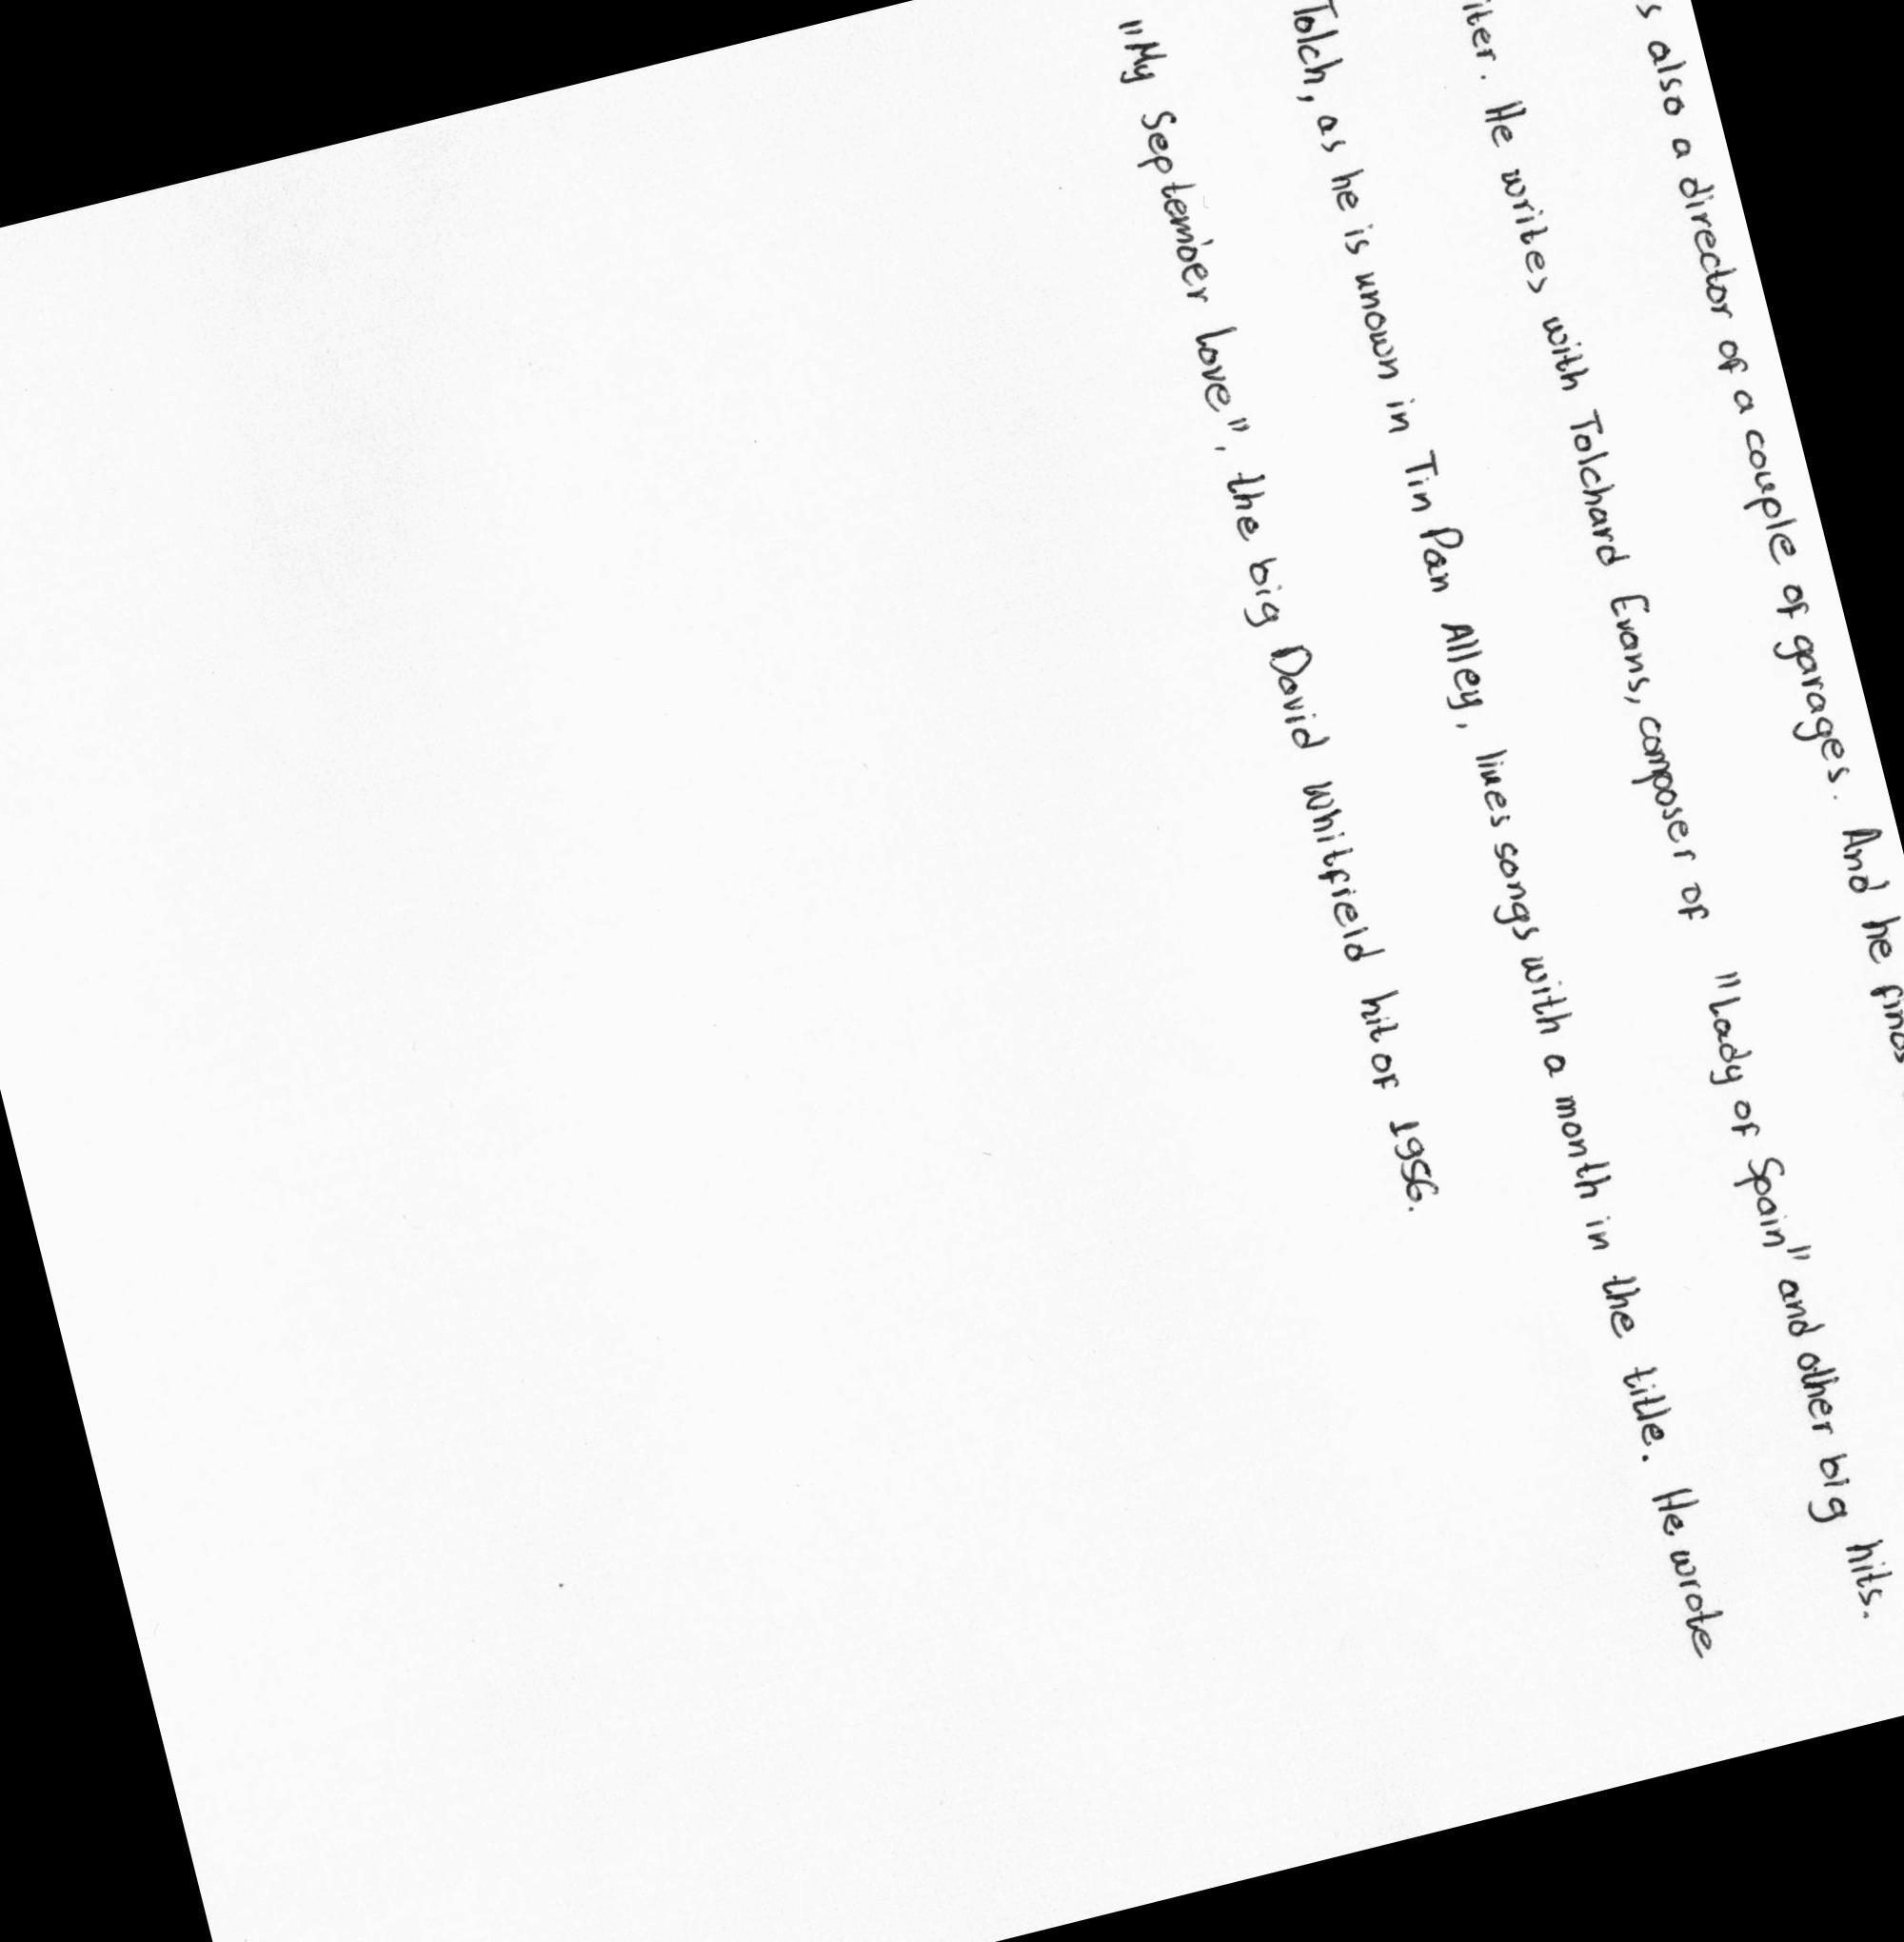 also a director of a couple of garages. And he finds
He writes with Tolchard Evans, composer of "Lady of Spain" and other big hits.
Tolch, as he is known in Tin Pan Alley, likes songs with a month in the title. He wrote
"My September Love", the big David Whitfield hit of 1956.